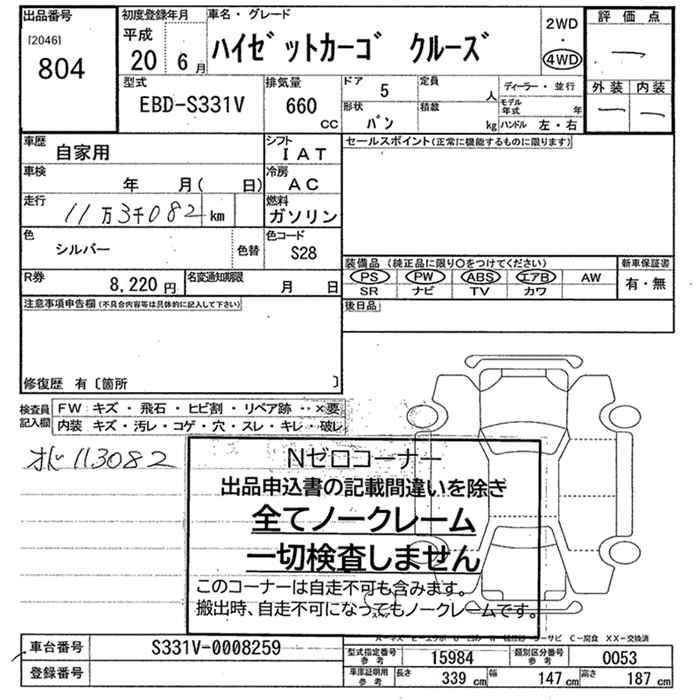 出品番号
[2046]
804
初度登録年月
平成
20 6月
車名・グレード
ハイゼットカーゴ クルーズ
2WD
・
4WD
評価点
―
外装 内装
― ―
型式
EBD-S331V
排気量
660
CC
ドア
5
定員
人
形状
バン
積載
kg
ディーラー・並行
モデル年式 年
ハンドル 左・右
車歴
自家用
シフト
IAT
車検
年 月( 日)
冷房
AC
走行
11万3千082 km
燃料
ガソリン
色
シルバー
色替
色コード
S28
R券
8,220円
名変通知期限
月 日
セールスポイント(正常に機能するものに限ります)
装備品(純正品に限り○をつけてください)
PS PW ABS エアB AW
SR ナビ TV カワ
新車保証書
有・無
後日品
注意事項申告欄(不具合内容等は具体的に記入して下さい)
修復歴 有〔箇所 〕
検査員記入欄
FW:キズ・飛石・ヒビ割・リペア跡・・×要
内装:キズ・汚レ・コゲ・穴・スレ・キレ・破レ
113082
Nゼロコーナー
出品申込書の記載間違いを除き
全てノークレーム
一切検査しません
このコーナーは自走不可も含みます。
搬出時、自走不可になってもノークレームです。
C－腐食 XX－交換済
車台番号
S331V-0008259
登録番号
型式指定番号
参考
15984
類別区分番号
参考
0053
車庫証明用
参考
長さ
339 cm
幅
147 cm
高さ
187 cm